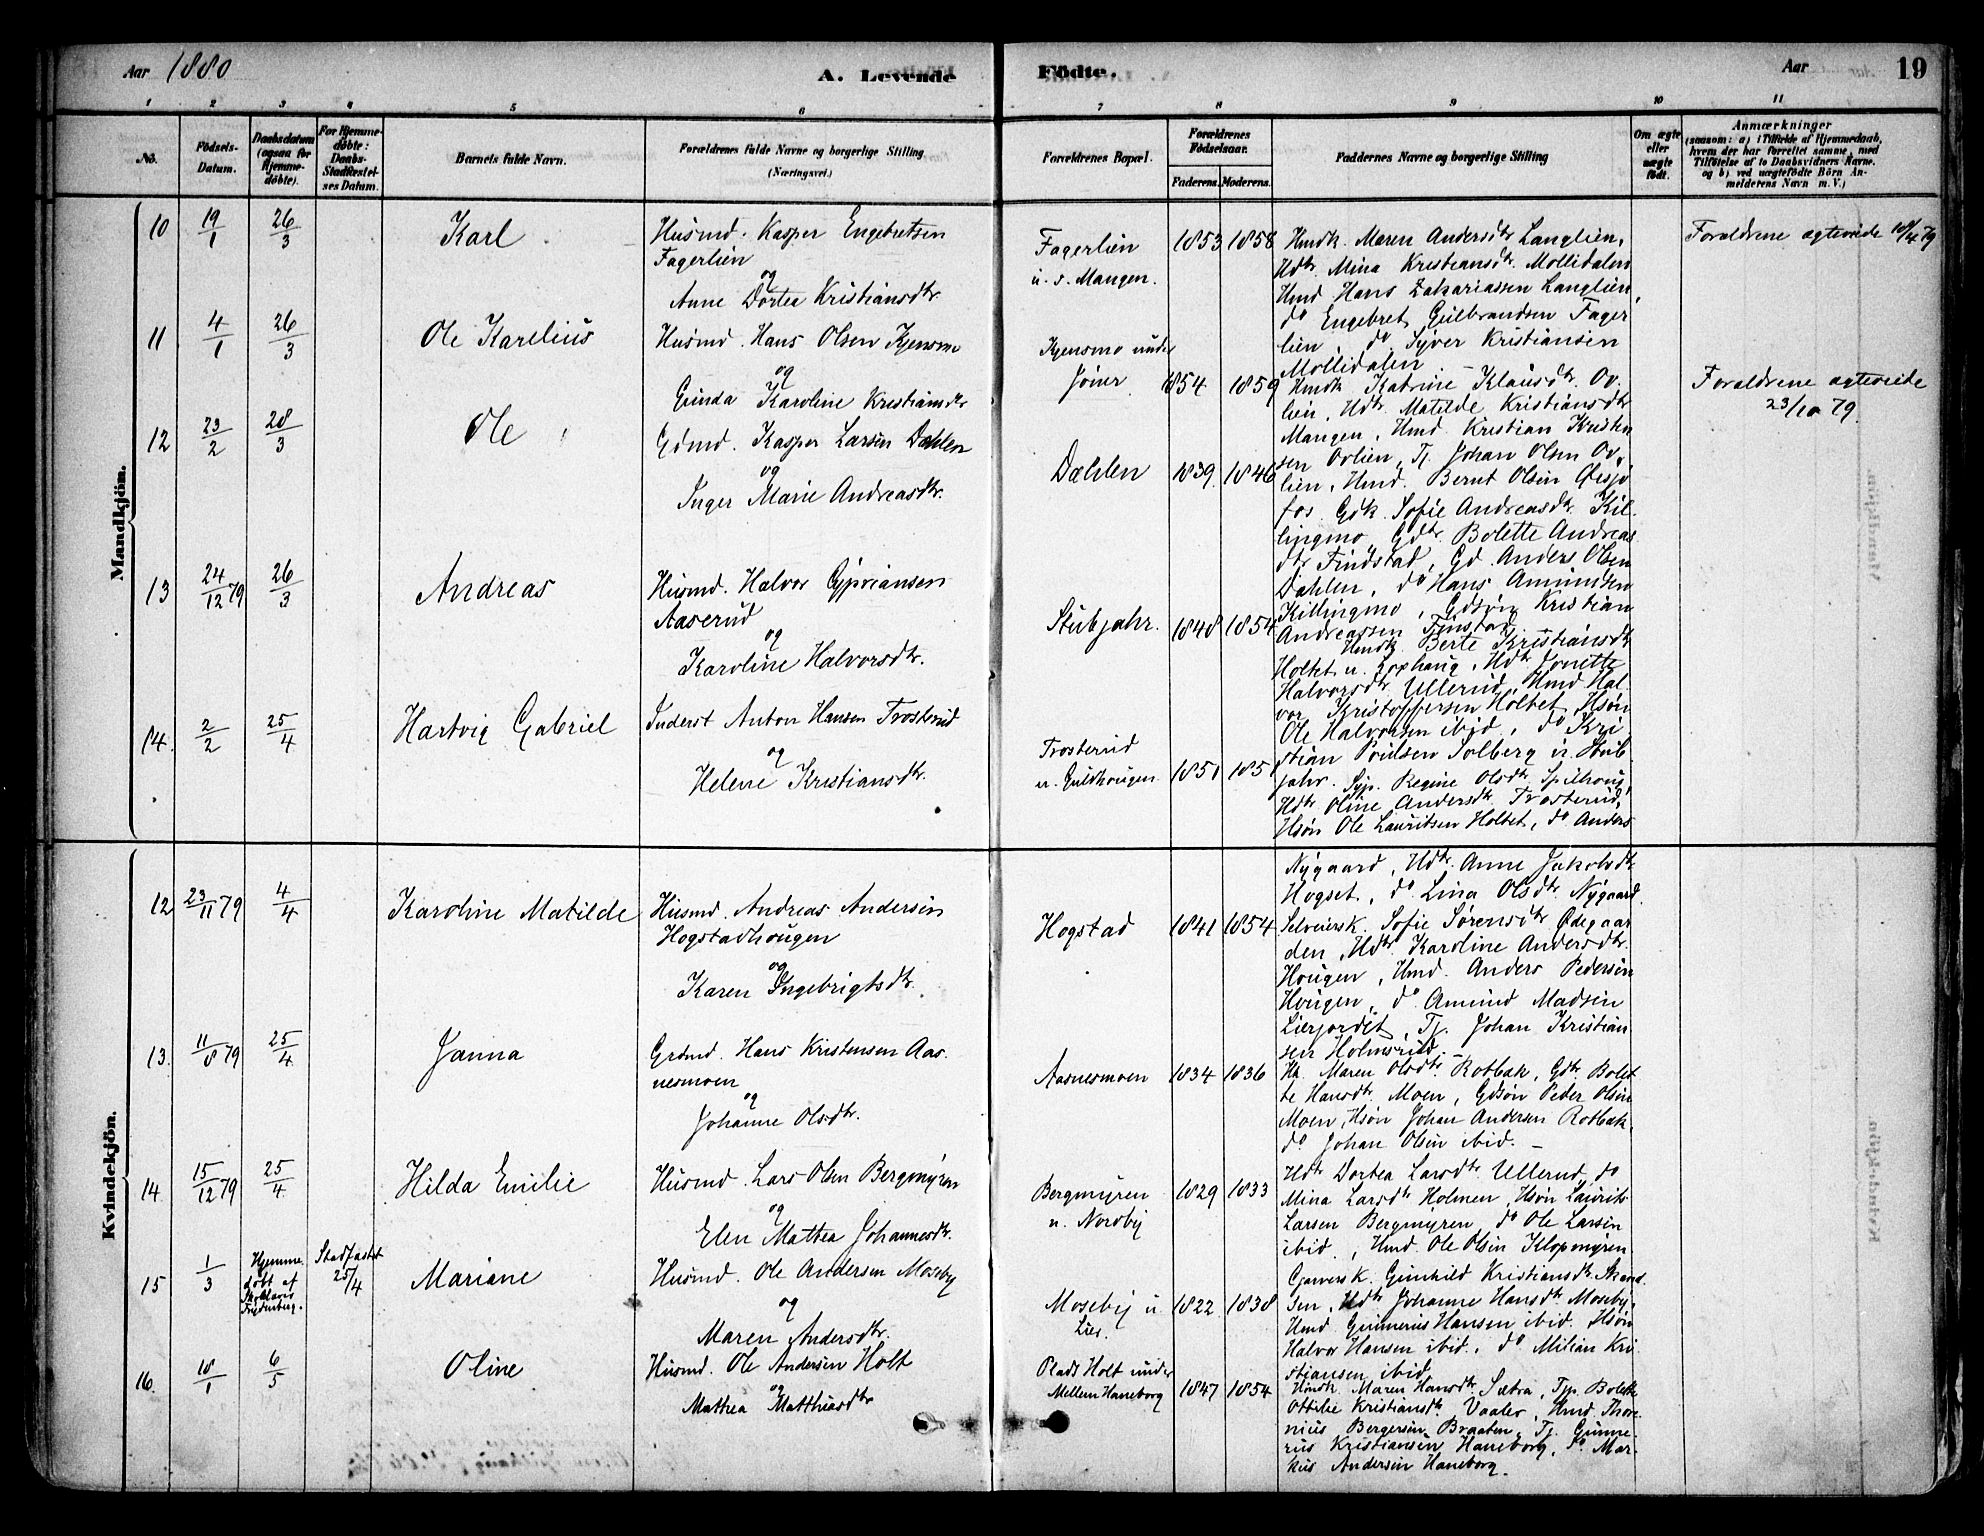 Aar 1880
A. Levende
Födte.
Aar
19
1 2 3 4 5 6 7 8 9 10 11
No.
Födsels-Datum.
Daabsdatum (ogsaa for Hjemme-döbte).
For Hjemme-döbte: Daabs-Stadfæstel-ses Datum.
Barnets fulde Navn.
Forældrenes fulde Navne og borgerlige Stilling (Næringsvei.)
Forældrenes Bopæl.
Forældrenes Födselsaar.
Faderens. Moderens.
Faddernes Navne og borgerlige Stilling
Om ægte eller uægte födt.
Anmærkninger
(saasom: a) i Tilfælde af Hjemmedaab, hvem der har forrettet samme, med Tilföielse af to Daabsvidners Navne. og b) ved uægtefödte Börn An-melderens Navn m. V.)
Mandkjön.
10 19/1 26/3 Karl
Husmd. Kasper Engebretsen
Fagerlien
og
Anne Dortea Kristiansdtr.
Fagerlien
u. s. Mangen.
1853 1858
Hmdk. Maren Andersdtr Langlien,
Hdtr Mina Kristiansdtr. Mollidalen
Hmd Hans Zakariassen Langlien,
do Engebret Gulbrandsen Fager
lien, do Syver Kristiansen
Mollidalen. –
Forældrene ægteviede 10/4 79
11 4/1 26/3 Ole Karelius
Husmd. Hans Olsen Kjensmo
og
Gunda Karoline Kristiansdtr
Kjensmo under
Joner
1854 1859
Hmdk Katrine Klausdtr. Ov.
lien, Hdtr. Matilde Kristiansdtr
Mangen, Hmd. Kristian Kristen
sen Ovlien, Tj. Johan Olsen Ov,
lien, Hmd. Bernt Olsen
fos
Forældrene ægteviede
23/10 79.
12 23/2 28/3 Ole
Gdmd. Kasper Larsen Dæhlen
og
Inger Marie Andreasdtr.
Dæhlen
1839. 1846
Gdk. Sofie Andreasdtr. Kil-
lingmo, Gdtr. Bolette Andreas
dtr Findstad, Gd. Anders Olsen
Dahlen, do Hans Amundsen
Killingmo, Gdsøn Kristian
Andreassen Finstad.
13 24/12 79 26/3 Andreas
Husmd. Halvor Cypriansen
Aaserud
og
Karoline Halvorsdtr.
Stubjahr.
1848 1854
Hmdk. Berte Kristiansdtr
Holtet u. Lophaug, Hdtr.
Halvorsdtr. Ullerud, Hmd Hal.
vor Kristoffersen Holtet, Hsøn
Ole Halvorsen ibid, do Kri
stian Poulsen Solberg u. Stub-
jahr.
14. 2/2 25/4 Hartvig Gabriel
Inderst Anton Hansen Trosterud
og
Helene Kristiansdtr.
Trosterud
u. Guldhougen.
1851 1851
Syp. Regine Olsdtr. Spilhoug,
Hdtr Oline Andersdtr. Trosterud,
Hsøn Ole Lauritsen Holtet, do Anders
Kvindekjön.
12 23/11 79 4/4 Karoline Matilde
Husmd. Andreas Andersen
Hogstadhougen
og
Karen Ingebrigtsdtr.
Hogstad
1841 1854
Nygaard, Hdtr. Anne Jakobsdtr
Hogset, do Lina Olsdtr. Nygaard.
Selveiersk. Sofie Sørensdtr Ødegaar
den, Hdtr Karoline Andersdtr.
Hougen, Hmd. Anders Pedersen
Hougen, do. Amund Madsen
Lierjordet, Tj. Johan Kristian
sen Holmsrud. –
13. 11/8 79 25/4 Janna
Grdmd. Hans Kristensen Aas.
nesmoen
og
Johanne Olsdtr.
Aasnesmoen
1834 1836
Hk. Maren Olsdtr. Rotbæk, Gdtr. Bolet
te Hansdtr. Moen, Gdsøn Peder Olsen
Moen, Hsøn Johan Andersen Rotbæk,
do Johan Olsen ibid. –
14. 15/12 79 25/4 Hilda Emilie
Husmd. Lars Olsen Bergmyren
og
Elen Mathea Johannesdtr.
Bergmyren
u. Nordby
1829 1833
Hdtr Dortea Larsdtr. Ullerud, do
Mina Larsdtr Holmen, Hsøn Laurits
Larsen Bergmyren, do Ole Larsen
ibid., Hmd. Ole Olsen Klopmyren
15 1/3 Hjemme
døbt af
Skolelærer
Fredenberg.
Stadfæstet
25/4
Mariane
Husmd. Ole Andersen Moseby
og
Maren Andersdtr.
Moseby u
Lier.
1822 1838
Garversk. Gunhild Kristiansdtr. Strand
sen, Hdtr Johanne Hansdtr Moseby,
Hmd Gunnerus Hansen ibid. Hsøn
Halvor Hansen ibid. do Milian Kri
stiansen ibid
16. 18/1 6/5 Oline
Husmd. Ole Andersen Holt
og
Mathea Matthiasdtr
Plads Holt under
Mellem Haneborg
1847 1854
Hmdk. Maren Hansdtr. Sætra, Tjp. Bolette
Ottilie Kristiansdtr. Vaaler, Hmd. Thore
nius Bergersen Braaten, Tj. Gunne-
rus Kristiansen Haneborg, do Mar-
kus Andersen Haneborg.